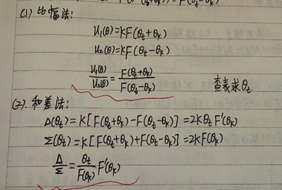 (1) 比幅法:
u₁(θ)=KF(θₜ+θₖ)
u₂(θ)=KF(θₜ-θₖ)
u₁(θ)/u₂(θ) = F(θₜ+θₖ)/F(θₜ-θₖ) 查表求θₜ
(2). 和差法:
Δ(θₜ)=K[F(θₜ+θₖ)-F(θₜ-θₖ)]=2Kθₜ F'(θₖ)
Σ(θₜ)=K[F(θₜ+θₖ)+F(θₜ-θₖ)]=2KF(θₖ)
Δ/Σ = θₜ/F(θₖ) F'(θₖ)